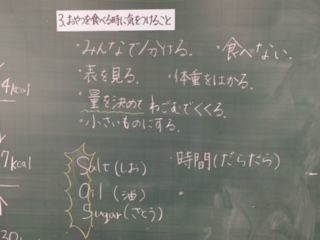 3.おやつを食べる時に気をつけること
・みんなで分ける。 ・食べない。
・表を見る。 ・体重をはかる。
・量を決めて わごむでくくる。
・小さいものにする。
4kcal
Salt(しお) ・時間(だらだら)
7kcal
Oil(油) ・
Sugar(さとう)